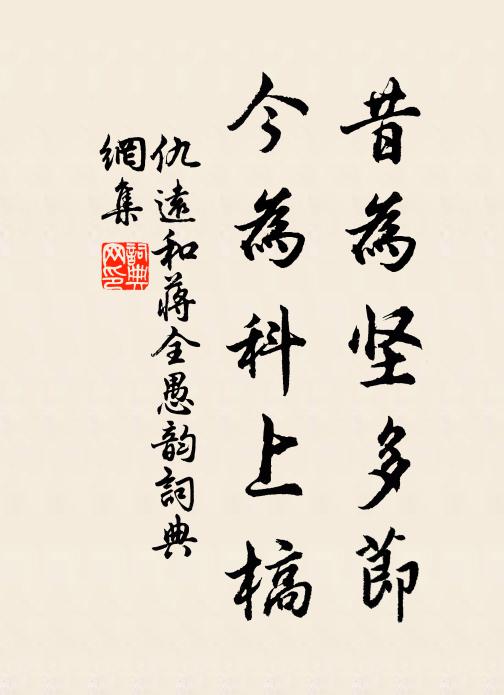 昔為坚多節
今為科上槁
仇遠和蔣全愚韵詞典
網集
詞典
网印